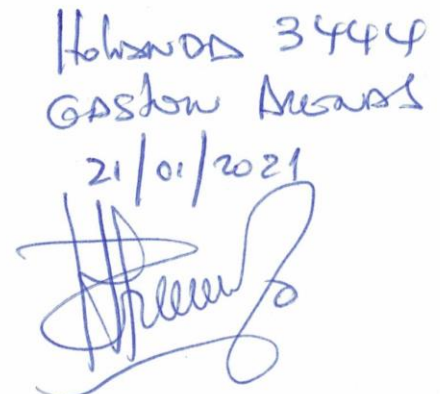 Holanda 3444
Gaston Arenas
21/01/2021